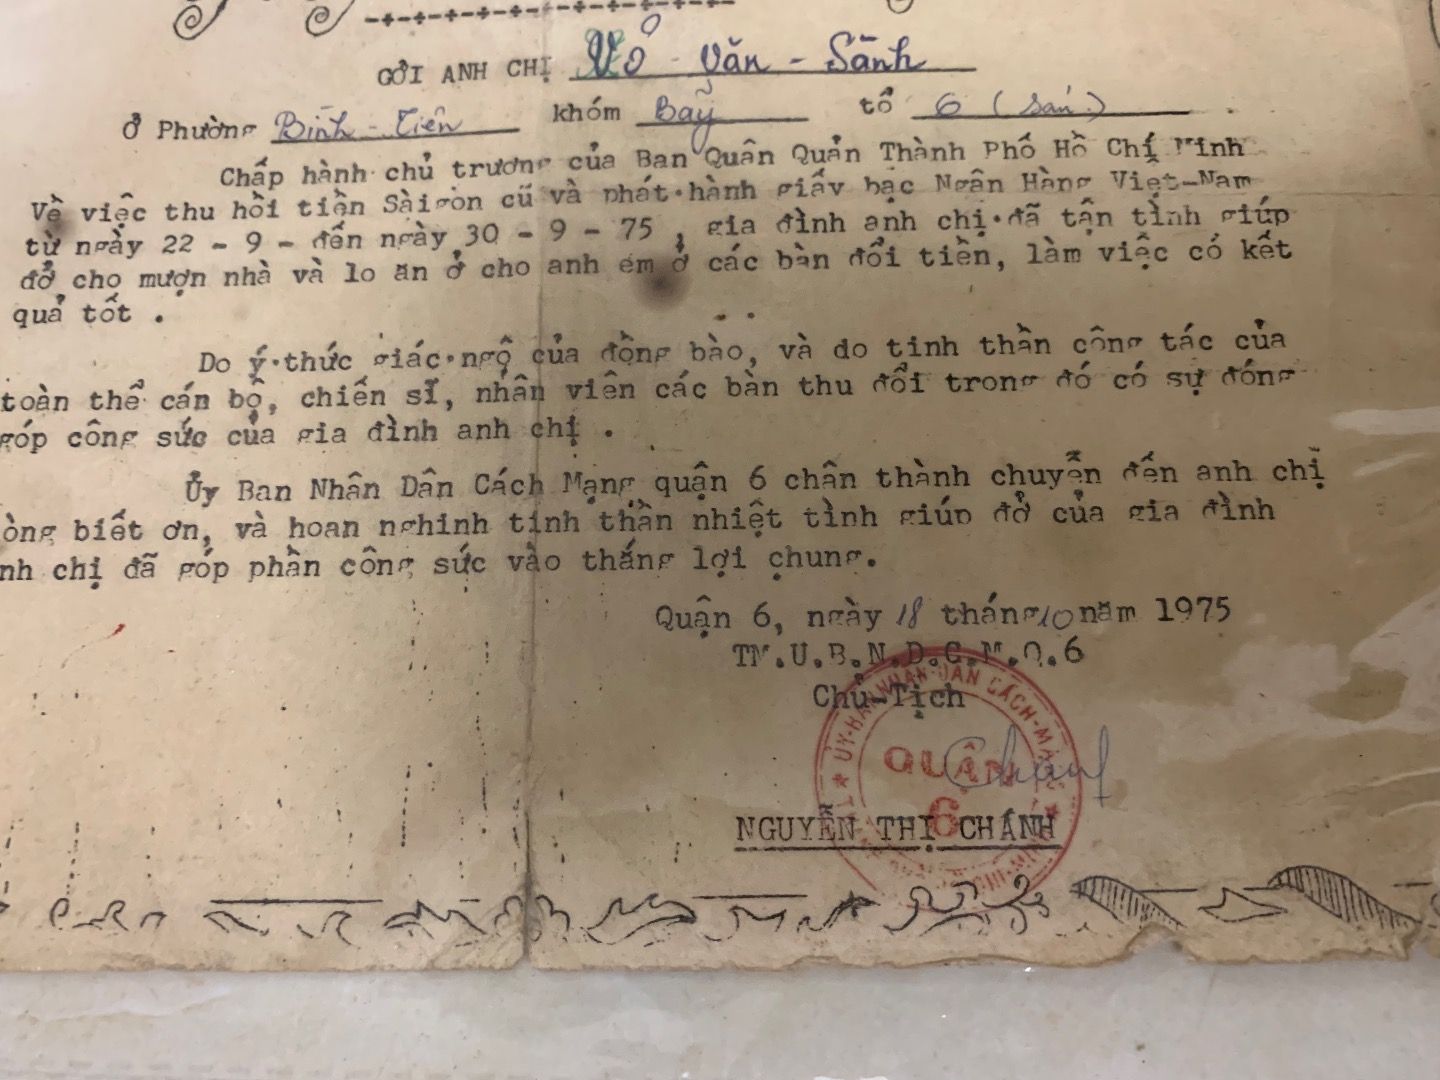 GỞI ANH CHỊ Võ - Văn - Sành
Ở Phường Bình - Tiên khóm Bảy tổ 6 (sáu)
Chấp hành chủ trương của Ban Quân Quản Thành Phố Hồ Chí Minh
Về việc thu hồi tiền Sàigòn cũ và phát hành giấy bạc Ngân Hàng Việt-Nam
từ ngày 22 - 9 - đến ngày 30 - 9 - 75 , gia đình anh chị đã tận tình giúp
đở cho mượn nhà và lo ăn ở cho anh em ở các bàn đổi tiền, làm việc có kết
quả tốt .
Do ý thức giác ngộ của đồng bào, và do tinh thần công tác của
toàn thể cán bộ, chiến sĩ, nhân viên các bàn thu đổi trong đó có sự đóng
góp công sức của gia đình anh chị .
Ủy Ban Nhân Dân Cách Mạng quận 6 chân thành chuyển đến anh chị
òng biết ơn, và hoan nghinh tinh thần nhiệt tình giúp đở của gia đình
nh chị đã góp phần công sức vào thắng lợi chung.
Quận 6, ngày 18 tháng 10 năm 1975
TM.U.B.N.D.C.M.Q.6
Chủ-Tịch
ỦY-BAN NHÂN-DÂN CÁCH-MẠNG
QUẬN
6
NGUYỄN THỊ CHÁNH